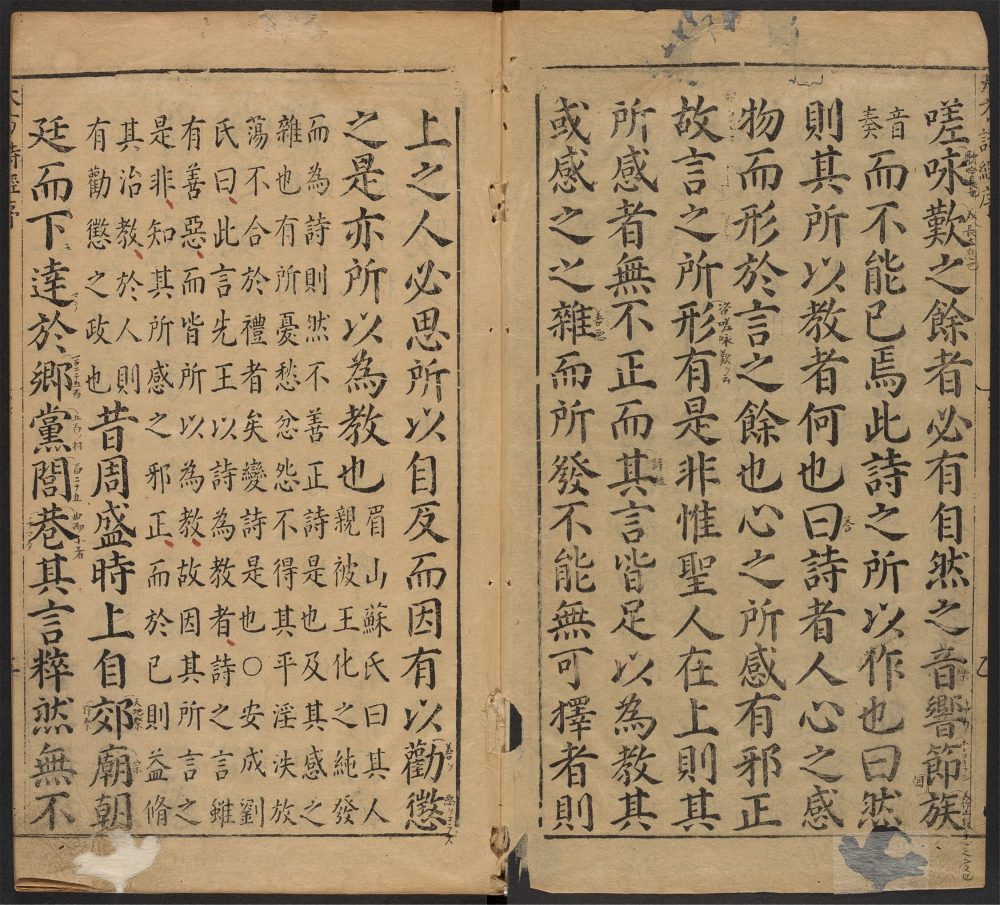 嗟咏歎之餘者必有自然之音響節族
音
奏
而不能已焉此詩之所以作也曰然
則其所以教者何也曰詩者人心之感
物而形於言之餘也心之所感有邪正
故言之所形有是非惟聖人在上則其
所感者無不正而其言皆足以為教其
或感之之雜而所發不能無可擇者則
上之人必思所以自反而因有以勸懲
之是亦所以為教也
眉山蘇氏曰其人
親被王化之純發
而為詩則然不善正詩是也及其感之
雜也有所憂愁忿怨不得其平淫泆放
蕩不合於禮者矣變詩是也○安成劉
氏曰此言先王以詩為教者詩之言雖
有善惡而皆所以為教故因其所言之
是非知其所感之邪正而於已則益脩
其治教於人則
有勸懲之政也
昔周盛時上自郊廟朝
廷而下達於鄉黨閭巷其言粹然無不